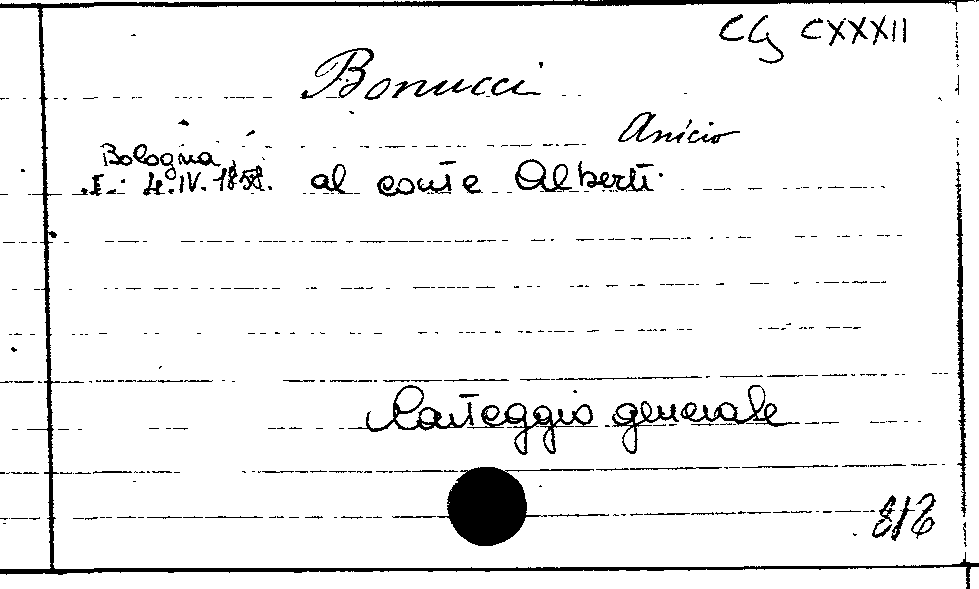 CG CXXXII
Bonucci
Anicio
Bologna
I. 4.IV.1858. al conte Alberti
Carteggio generale